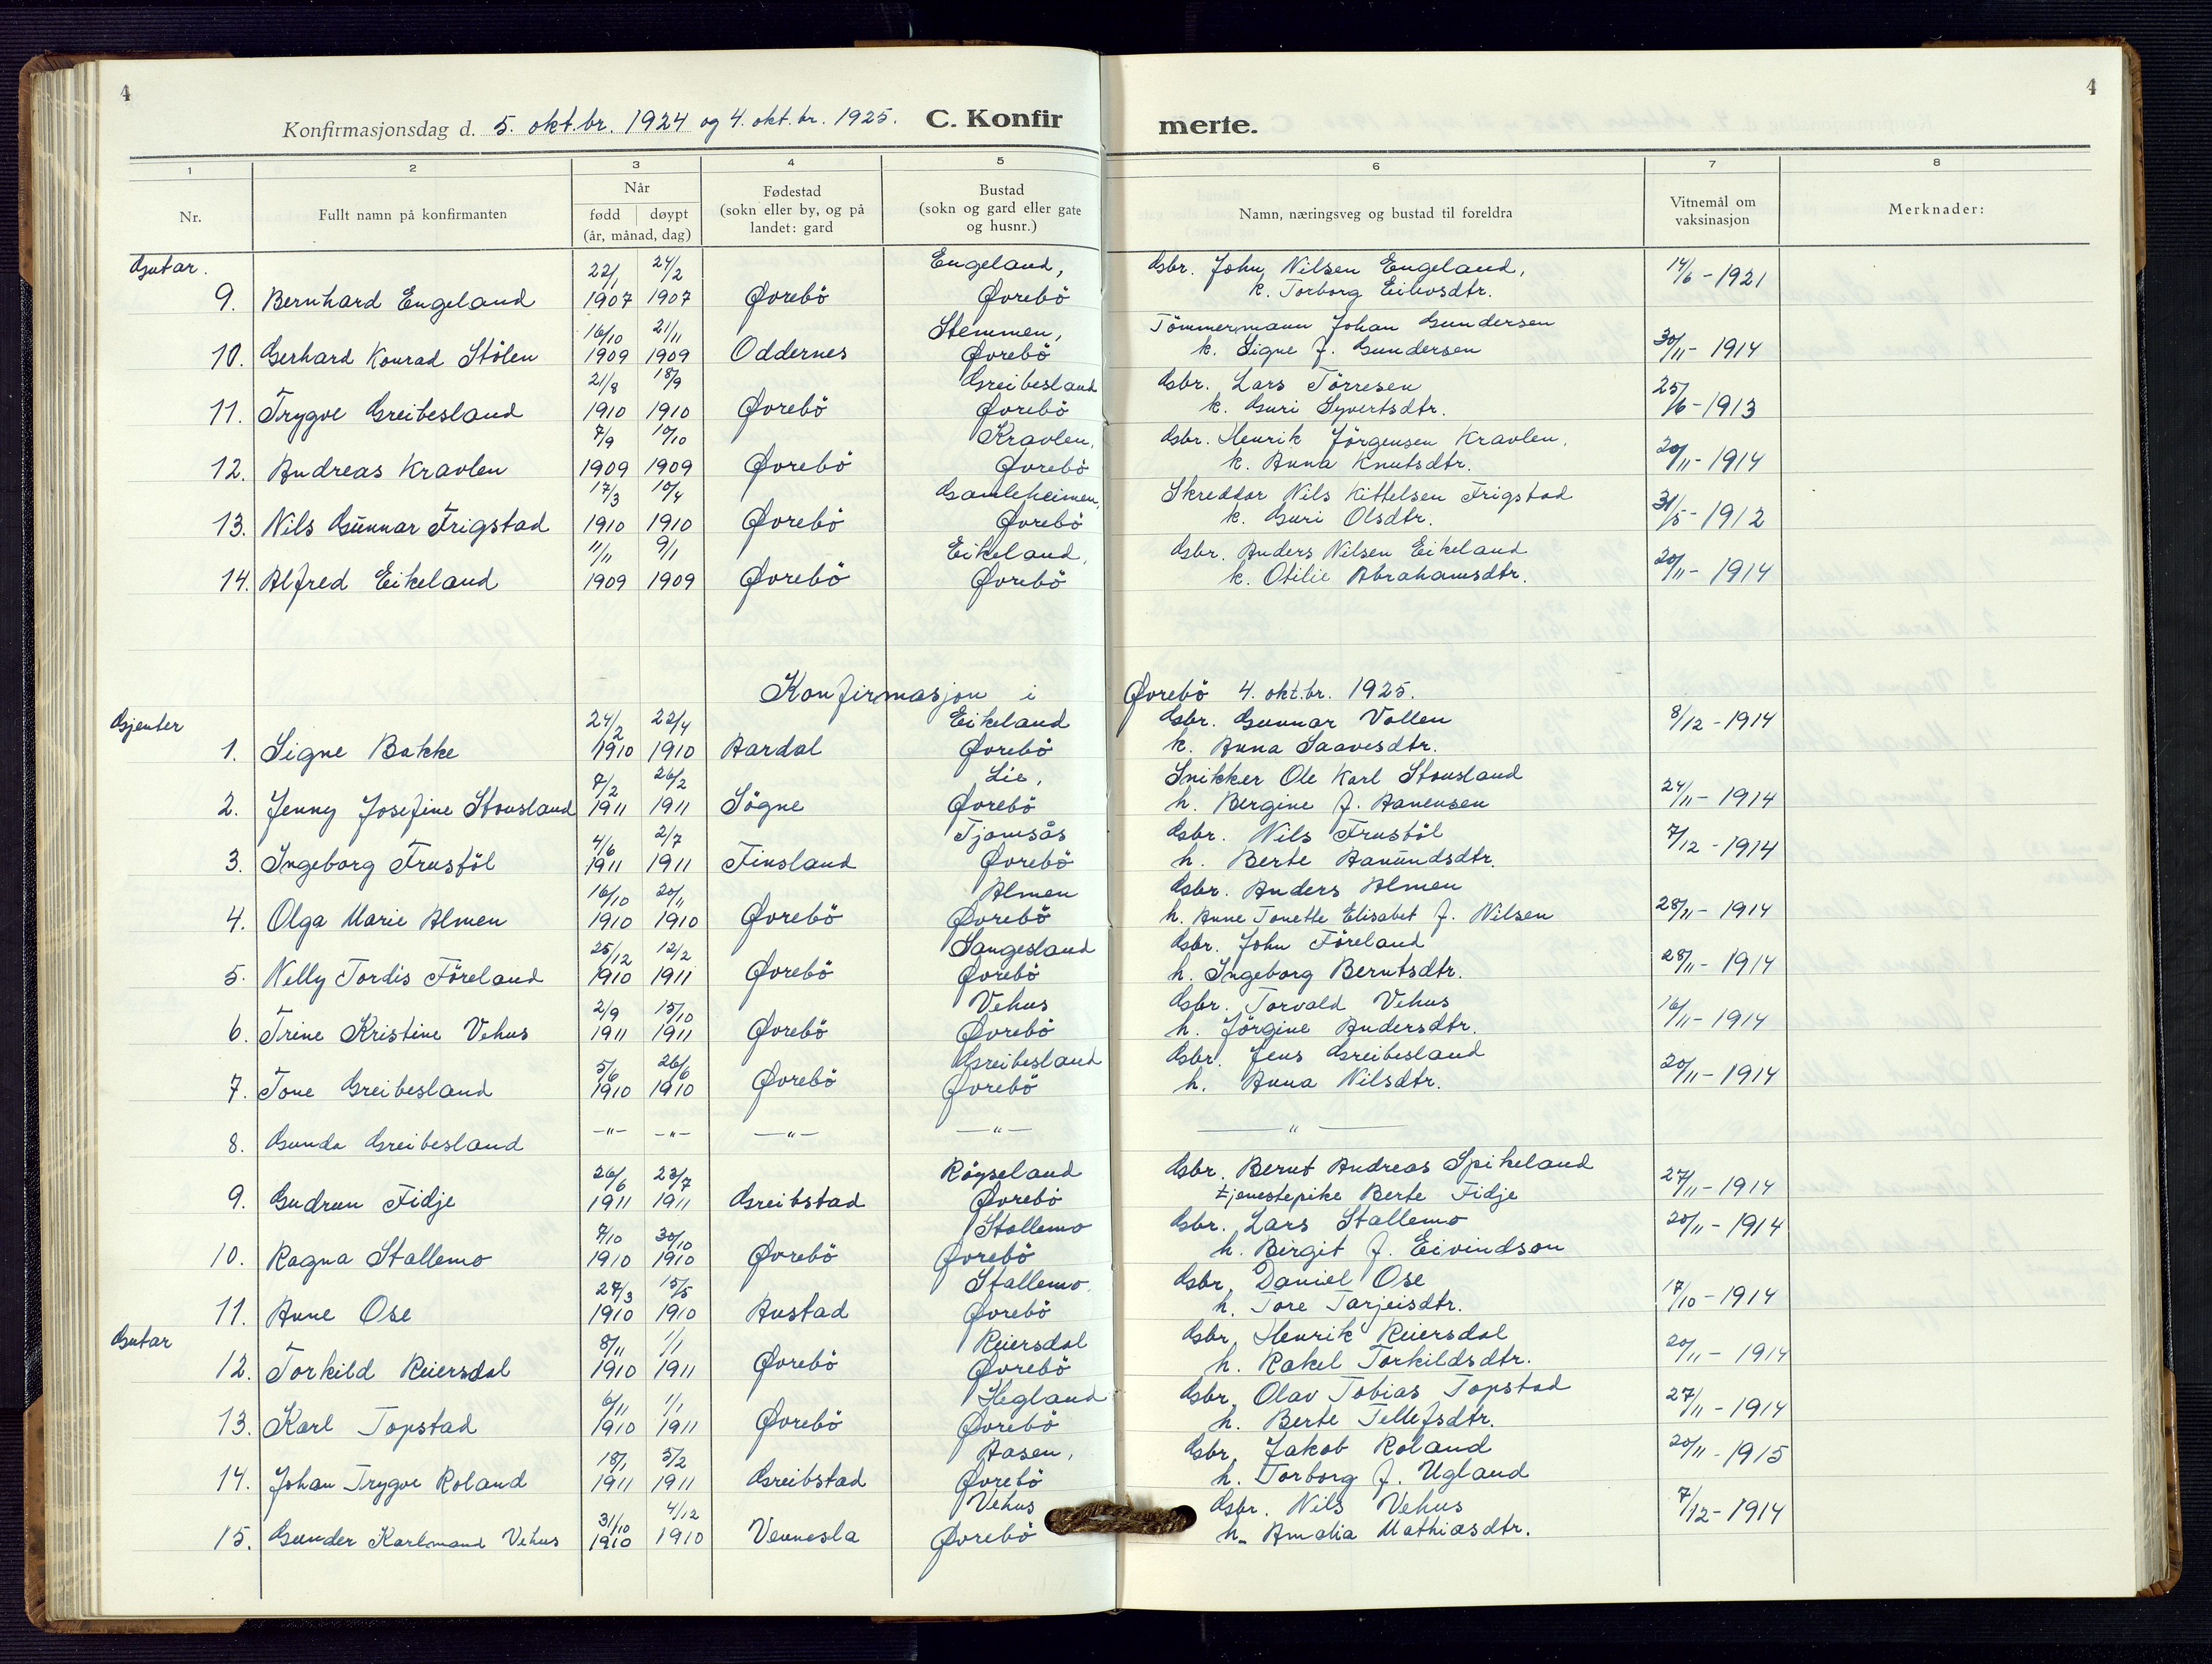 4
4
Konfirmasjonsdag d. 5. okt.br. 1924 og 4. okt.br. 1925. C. Konfir merte.
1 2 3 4 5 6 7 8
Nr. Fullt namn på konfirmanten Når Fødestad Bustad Namn, næringsveg og bustad til foreldra Vitnemål om Merknader:
født døypt (sokn eller by, og på (sokn og gard eller gate vaksinasjon
(år, månad, dag) landet: gard og husnr.)
Gutar. 22/1 24/2 Engeland, Gbr. John Nilsen Engeland, 14/6 - 1921
9. Bernhard Engeland 1907 1907 Øvrebö Øvrebö k. Torborg Eilivsdtr.
16/10 21/11 Stemmen, Tömmermann Johan Gundersen
10. Gerhard Konrad Stölen 1909 1909 Oddernes Øvrebö k. Signe f. Gundersen 30/11 - 1914
21/8 18/9 Greibesland Gbr. Lars Törresen
11. Trygve Greibesland 1910 1910 Øvrebö Øvrebö k. Guri Syvertsdtr. 25/6 - 1913
7/9 10/10 Kravlen, Gbr. Henrik Jörgensen Kravlen,
12. Andreas Kravlen 1909 1909 Øvrebö Øvrebö k. Anna Knutsdtr. 20/11 - 1914
17/3 10/4 Gamleheimen, Skreddar Nils Kittelsen Frigstad
13. Nils Gunnar Frigstad 1910 1910 Øvrebö Øvrebö k. Guri Olsdtr. 31/5 - 1912
11/11 9/1 Eikeland, Gbr. Anders Nilsen Eikeland
14. Alfred Eikeland 1909 1909 Øvrebö Øvrebö k. Otilie Abrahamsdtr. 20/11 - 1914
Konfirmasjon i Øvrebö 4. okt.br. 1925.
Gjenter 24/2 22/4 Eikeland Gbr. Gunnar Vollen 8/12 - 1914
1. Signe Bakke 1910 1910 Aardal Øvrebö k. Anna Saavesdtr.
7/2 26/2 Lie, Snikker Ole Karl Stousland
2. Jenny Josefine Stousland 1911 1911 Sögne Øvrebö h. Bergine f. Aanensen 24/11 - 1914
4/6 2/7 Tjomsås Gbr. Nils Frustöl
3. Ingeborg Frustöl 1911 1911 Finsland Øvrebö h. Berte Aanundsdtr. 7/12 - 1914
16/10 20/11 Almen Gbr. Anders Almen
4. Olga Marie Almen 1910 1910 Øvrebö Øvrebö h. Anne Tonette Elisabet f. Nilsen 28/11 - 1914
25/12 12/2 Sangesland Gbr. John Föreland
5. Nelly Tordis Föreland 1910 1911 Øvrebö Øvrebö h. Ingeborg Berntsdtr. 28/11 - 1914
2/9 15/10 Vehus Gbr. Torvald Vehus
6. Trine Kristine Vehus 1911 1911 Øvrebö Øvrebö h. Jörgine Andersdtr. 16/11 - 1914
5/6 26/6 Greibesland Gbr. Jens Greibesland
7. Tone Greibesland 1910 1910 Øvrebö Øvrebö h. Anna Nilsdtr. 20/11 - 1914
8. Gunda Greibesland -"- -"- -"- -"- -"-
26/6 23/7 Röyseland Gbr. Bernt Andreas Spikeland
9. Gudrun Fidje 1911 1911 Greibstad Øvrebö tjenestepike Berte Fidje 27/11 - 1914
7/10 30/10 Stallemo Gbr. Lars Stallemo 20/11 - 1914
10. Ragna Stallemo 1910 1910 Øvrebö Øvrebö h. Birgit f. Eivindson
27/3 15/5 Stallemo. Gbr. Daniel Ose
11. Aune Ose 1910 1910 Austad Øvrebö h. Tore Tarjeisdtr. 17/10 - 1914
Gutar 8/11 1/1 Reiersdal Gbr. Henrik Reiersdal
12. Torkild Reiersdal 1910 1911 Øvrebö Øvrebö h. Rakel Torkildsdtr. 20/11 - 1914
6/11 1/1 Hegland Gbr. Olav Tobias Topstad
13. Karl Topstad 1910 1911 Øvrebö Øvrebö h. Berte Tellefsdtr. 27/11 - 1914
18/1 5/2 Aasen, Gbr. Jakob Roland 20/11 - 1915
14. Johan Trygve Roland 1911 1911 Greibstad Øvrebö h. Torborg f. Ugland
31/10 4/12 Vehus Gbr. Nils Vehus 7/12 - 1914
15. Gunder Karlmand Vehus 1910 1910 Vennesla Øvrebö h. Amalia Mathiasdtr.